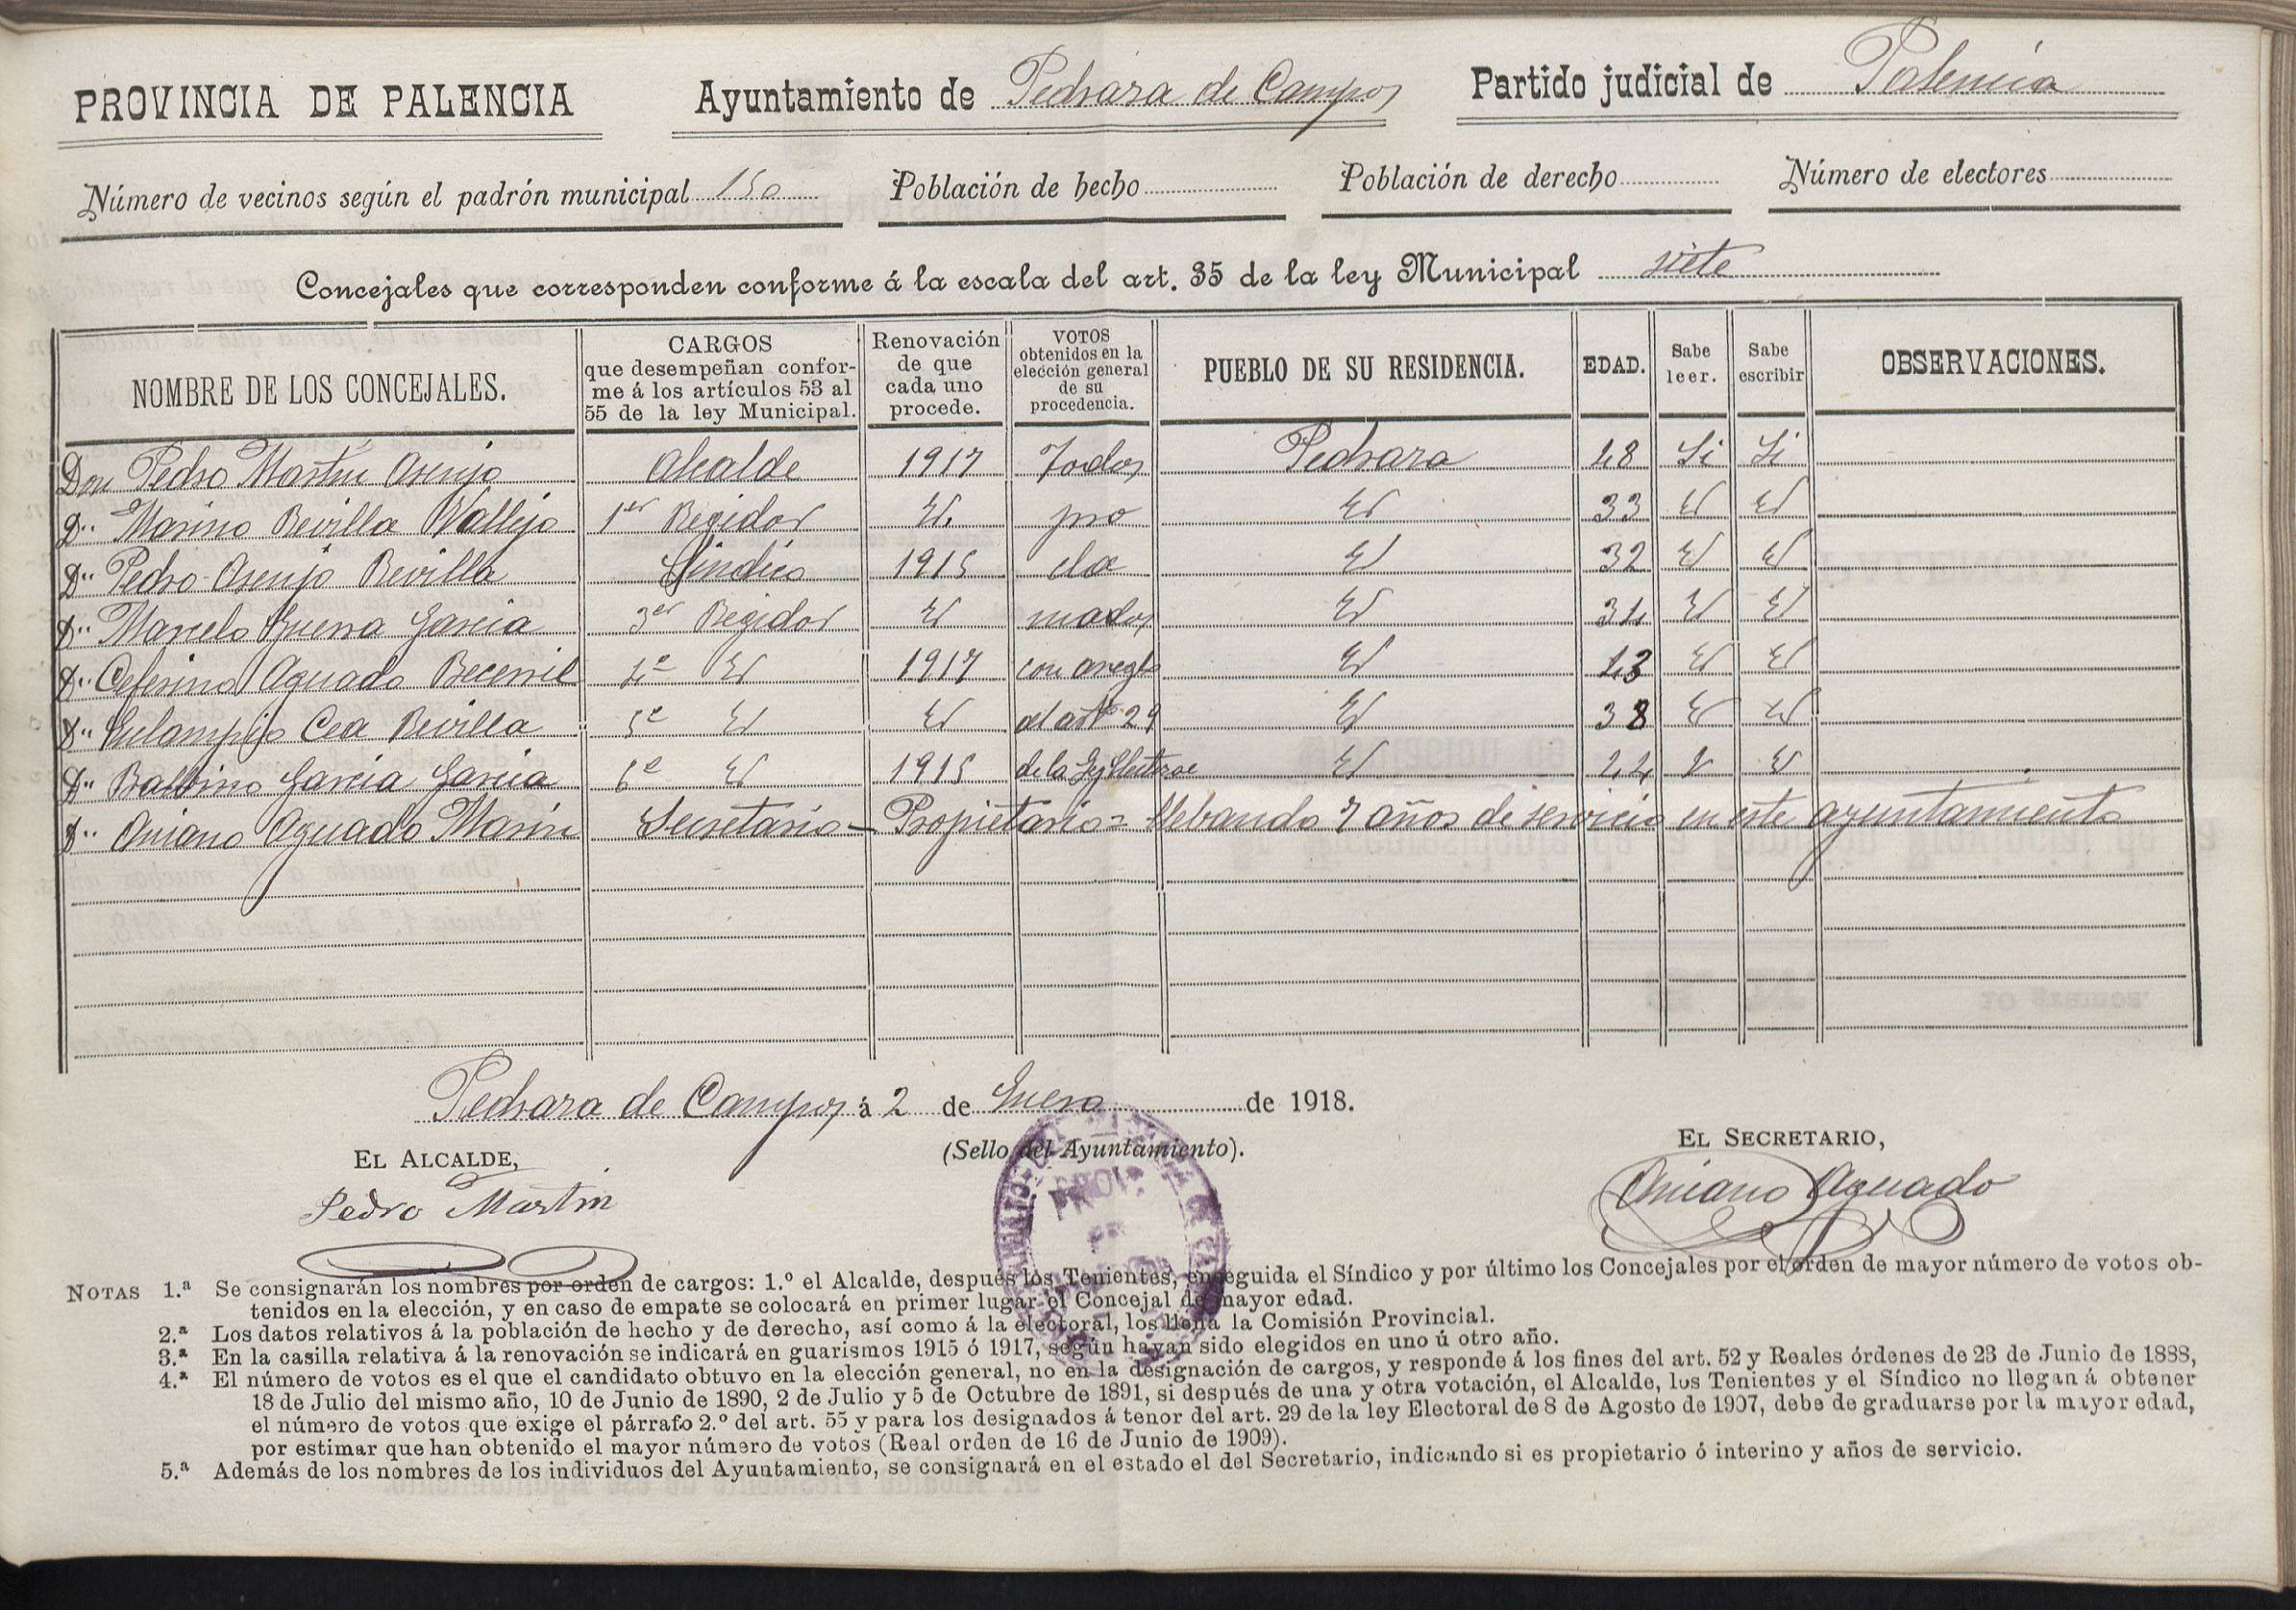 PROVINCIA DE PALENCIA Ayuntamiento de Pedraza de Campos Partido judicial de Palencia
Número de vecinos según el padrón municipal 150 Población de hecho Población de derecho Número de electores
Concejales que corresponden conforme á la escala del art. 35 de la ley Municipal siete
NOMBRE DE LOS CONCEJALES. CARGOS que desempeñan conforme á los artículos 53 al 55 de la ley Municipal. Renovación de que cada uno procede. VOTOS obtenidos en la elección general de su procedencia. PUEBLO DE SU RESIDENCIA. EDAD. Sabe leer. Sabe escribir OBSERVACIONES.
Don Pedro Martin Asenjo Alcalde 1917 Todos Pedraza 48 Si Si
D.n Marino Revilla Vallejo 1er Regidor Id. pro Id 33 Id Id
D.n Pedro Asenjo Revilla Sindico 1915 cla Id 32 Id Id
D.n Marcelo Guerra Garcia 3er Regidor Id mados Id 34 Id Id
D.n Ceferino Aguado Becerril 4º Id 1917 con areglo Id 43 Id Id
D.n Eulampio Cea Revilla 5º Id Id al artº 29 Id 38 Id Id
D.n Balbino Garcia Garcia 6º Id 1915 de la Ley Electoral Id 44 Id Id
D.n Aniano Aguado Marin Secretario - Propietario = llebando 7 años de servicio en este ayuntamiento
Pedraza de Campos á 2 de Enero de 1918.
EL ALCALDE, (Sello del Ayuntamiento). EL SECRETARIO,
Pedro Martin Aniano Aguado
NOTAS 1.ª Se consignarán los nombres por orden de cargos: 1.º el Alcalde, después los Tenientes, enseguida el Síndico y por último los Concejales por el orden de mayor número de votos ob-
tenidos en la elección, y en caso de empate se colocará en primer lugar el Concejal de mayor edad.
2.ª Los datos relativos á la población de hecho y de derecho, así como á la electoral, los llena la Comisión Provincial.
3.ª En la casilla relativa á la renovación se indicará en guarismos 1915 ó 1917, según hayan sido elegidos en uno ú otro año.
4.ª El número de votos es el que el candidato obtuvo en la elección general, no en la designación de cargos, y responde á los fines del art. 52 y Reales órdenes de 23 de Junio de 1888,
18 de Julio del mismo año, 10 de Junio de 1890, 2 de Julio y 5 de Octubre de 1891, si después de una y otra votación, el Alcalde, los Tenientes y el Síndico no llegan á obtener
el número de votos que exige el párrafo 2.º del art. 55 y para los designados á tenor del art. 29 de la ley Electoral de 8 de Agosto de 1907, debe de graduarse por la mayor edad,
por estimar que han obtenido el mayor número de votos (Real orden de 16 de Junio de 1909).
5.ª Además de los nombres de los individuos del Ayuntamiento, se consignará en el estado el del Secretario, indicando si es propietario ó interino y años de servicio.